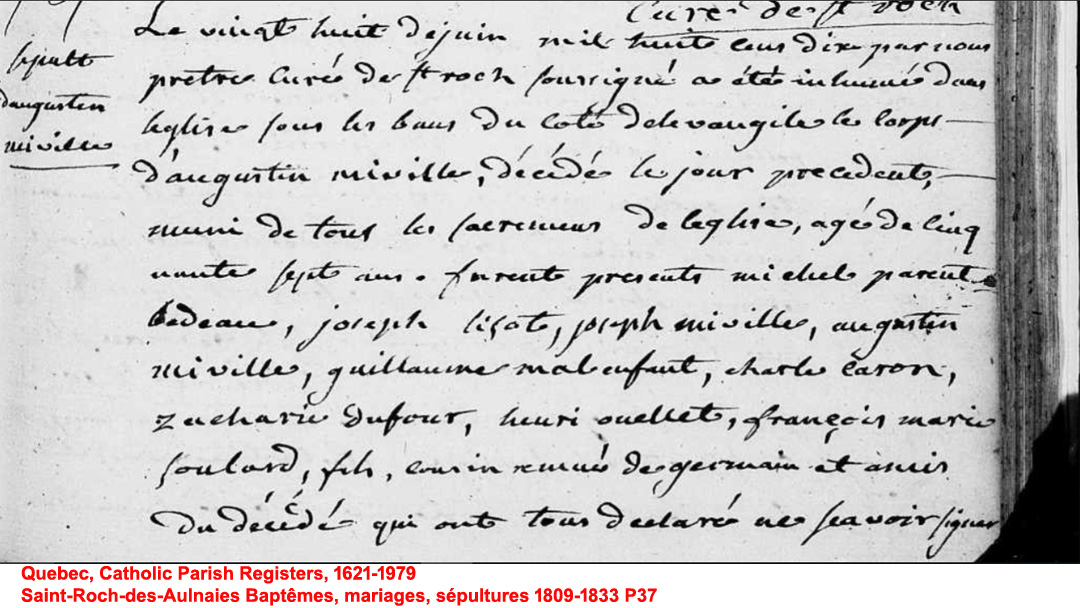 Curé de st roch
Le vingt huit de juin mil huit cens dix par nous
sepult
prêtre Curé de st roch soussigné a été inhumé dans
d'augustin
léglise sous les bans du coté de levangile le corps
miville
d'augustin miville, décédé le jour precedent,
muni de tous les sacremens de leglise, agé de cinq
uante sept ans. furent presents michel parent
bedeau, joseph liçote, joseph miville, augustin
miville, guillaume malenfant, charle Caron,
zacharie Dufour, henri ouellet, françois marie
soulard, fils, cousin remué de germain et amis
du décédé qui ont tous declaré ne sçavoir signer
Quebec, Catholic Parish Registers, 1621-1979
Saint-Roch-des-Aulnaies Baptêmes, mariages, sépultures 1809-1833 P37